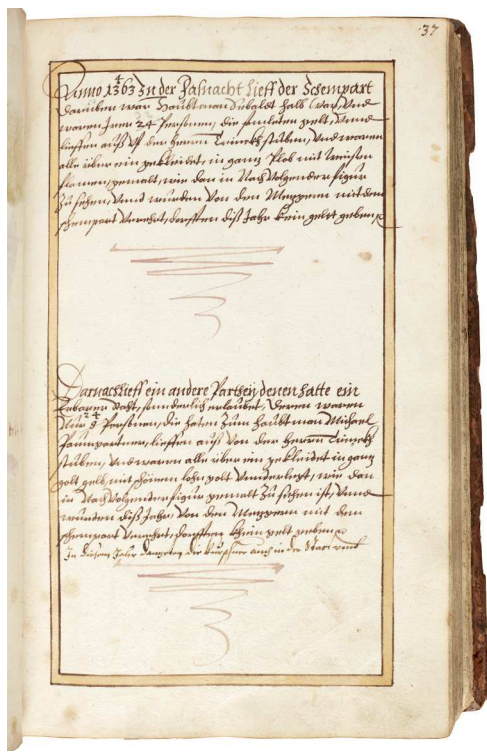 37
Anno 1463 In der Fasnacht Lieff der Schempart
darüben war Haubtman Sebaldt Halb Wax, Vnd
waren Irer 24 Personen, die hatten gelt, Vnnd
lieffen auß Vß der Herrn Trinckhstuben, Vnd waren
alle über ein gekleidet, in gantz Plob mit Weissen
flamen, gemalt, wie dan in Nach Volgender figur
Zu sehen, Vnnd wurden Von den Metzgern mit dem
schempart Verehrt, dorfften diß Jahr kein gelt geben
Darnach Lieff ein andere Parthey denen hatte ein
Erbarer Raht, sonderlich erlaubet, deren waren
Nur 8 Personen, die haten zum Haubtman Michael
Paumgartner, lieffen auß Von der Herrn Trinckh
stuben, Vnd waren alle über ein gekleidet in gantz
golt gelb, mit schönem golt Vnderlegt, wie dan
in Nach Volgender figur gemalt Zu sehen ist, Vnnd
wurden diß Jahr, Von den Metzgern mit dem
schempart Verehrt, dorfften khein gelt geben
In diesem Jahr dantzeten die kürschner auch in der Statt